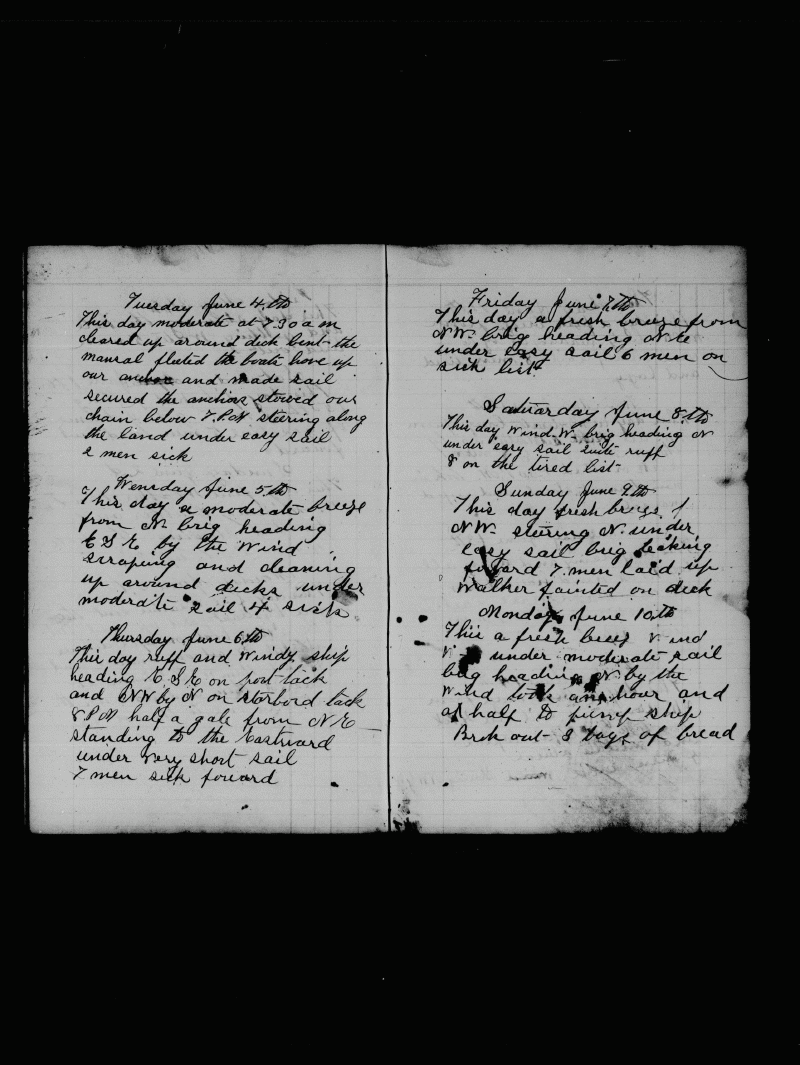 Tuesday June 4.th
This day moderate at 7.30 a m
cleared up around dick bent the
mansal fleeted the boats hove up
our and made sail
secured the anchors stowed our
chain below 7.P.M steering along
the land under easy sail
2 men sick
Wensday June 5.th
This day a moderate breeze
from N. brig heading
E S E by the Wind
scraping and cleaning
up around decks under
moderate sail 4 sick
Thursday June 6.th
This day ruff and windy ship
heading E. S E on port tack
and NW by N on starbord tack
8 P.M half a gale from N E
standing to the Eastward
under very short sail
7 men sick foward
Friday June 7.th
This day a fresh breeze from
N W. brig heading N E
under easy sail 6 men on
sick list
Saturday June 8.th
This day Wind. W. brig heading N
under easy sail quite ruff
8 on the tired list
Sunday June 9.th
This day fresh breas f
N W. steering N. under
easy sail brig leaking
foward 7. men laid up
Walker fainted on deck
Monday June 10.th
This a fresh Wind
under moderate sail
brig heading N by the
Wind took hour and
a half to pump ship
Brok out 3 bags of bread